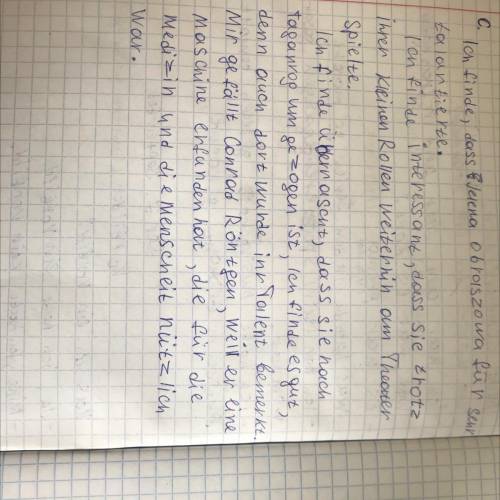 c. Ich finde, dass Elena obraszowa für sehr
talantierte.
Ich finde interessant, dass sie trotz
ihrer kleinen Rollen weiterhin am Theater
spielte.
Ich finde überrascht, dass sie nach
taganrog umgezogen ist, Ich finde es gut,
denn auch dort wurde ihr Talent bemerkt.
Mir gefällt Conrad Röntgen, weil er eine
Maschine erfunden hat, die für die
Medizin und die Menscheit nützlich
war.